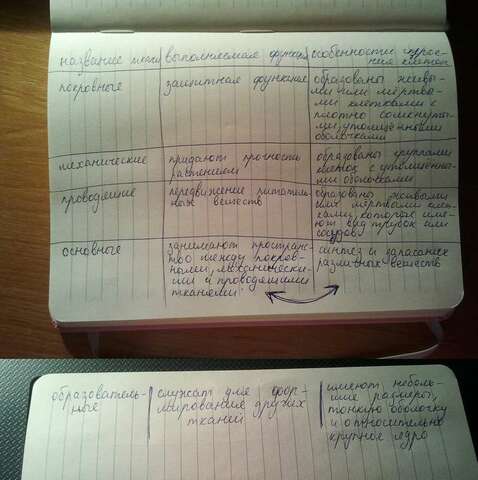 название ткани выполняемая функция особенности строения клеток
покровные
защитная функция
образованы живы-
ми или мертвы-
ми клетками с
плотно сомкнуты-
ми, утолщёнными
оболочками
механические
придают прочность
растениям
образованы группами
клеток с утолщённы-
ми оболочками
проводящие
передвижение питатель-
ных веществ
образованы живыми
или мёртвыми клет-
ками, которые име-
ют вид трубок или
сосудов
основные
занимают пространс-
тво между покров-
ными, механически-
ми и проводящими
тканями
синтез и запасание
различных веществ
образователь-
ные
служат для фор-
мирование других
тканей
имеют неболь-
шие размеры,
тонкую оболочку
и относительно
крупное ядро